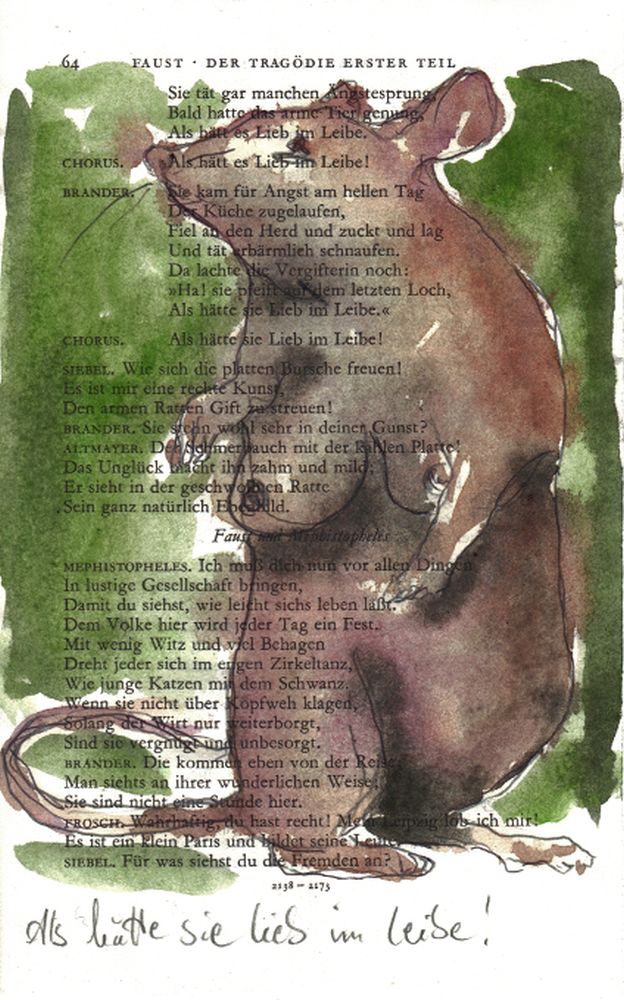 64 FAUST · DER TRAGÖDIE ERSTER TEIL
Sie tät gar manchen Ängstesprung,
Bald hatte das arme Tier genung,
Als hätt es Lieb im Leibe.
CHORUS. Als hätt es Lieb im Leibe!
BRANDER. Sie kam für Angst am hellen Tag
Der Küche zugelaufen,
Fiel an den Herd und zuckt und lag
Und tät erbärmlich schnaufen.
Da lachte die Vergifterin noch:
»Ha! sie pfeift auf dem letzten Loch,
Als hätte sie Lieb im Leibe.«
CHORUS. Als hätte sie Lieb im Leibe!
SIEBEL. Wie sich die platten Bursche freuen!
Es ist mir eine rechte Kunst,
Den armen Ratten Gift zu streuen!
BRANDER. Sie stehn wohl sehr in deiner Gunst?
ALTMAYER. Der Schmerbauch mit der kahlen Platte!
Das Unglück macht ihn zahm und mild;
Er sieht in der geschwollnen Ratte
Sein ganz natürlich Ebenbild.
Faust und Mephistopheles
MEPHISTOPHELES. Ich muß dich nun vor allen Dingen
In lustige Gesellschaft bringen,
Damit du siehst, wie leicht sichs leben läßt.
Dem Volke hier wird jeder Tag ein Fest.
Mit wenig Witz und viel Behagen
Dreht jeder sich im engen Zirkeltanz,
Wie junge Katzen mit dem Schwanz.
Wenn sie nicht über Kopfweh klagen,
Solang der Wirt nur weiterborgt,
Sind sie vergnügt und unbesorgt.
BRANDER. Die kommen eben von der Reise,
Man siehts an ihrer wunderlichen Weise;
Sie sind nicht eine Stunde hier.
FROSCH. Wahrhaftig, du hast recht! Mein Leipzig lob ich mir!
Es ist ein klein Paris und bildet seine Leute.
SIEBEL. Für was siehst du die Fremden an?
2138–2173
Als hätte sie Lieb im Leibe!